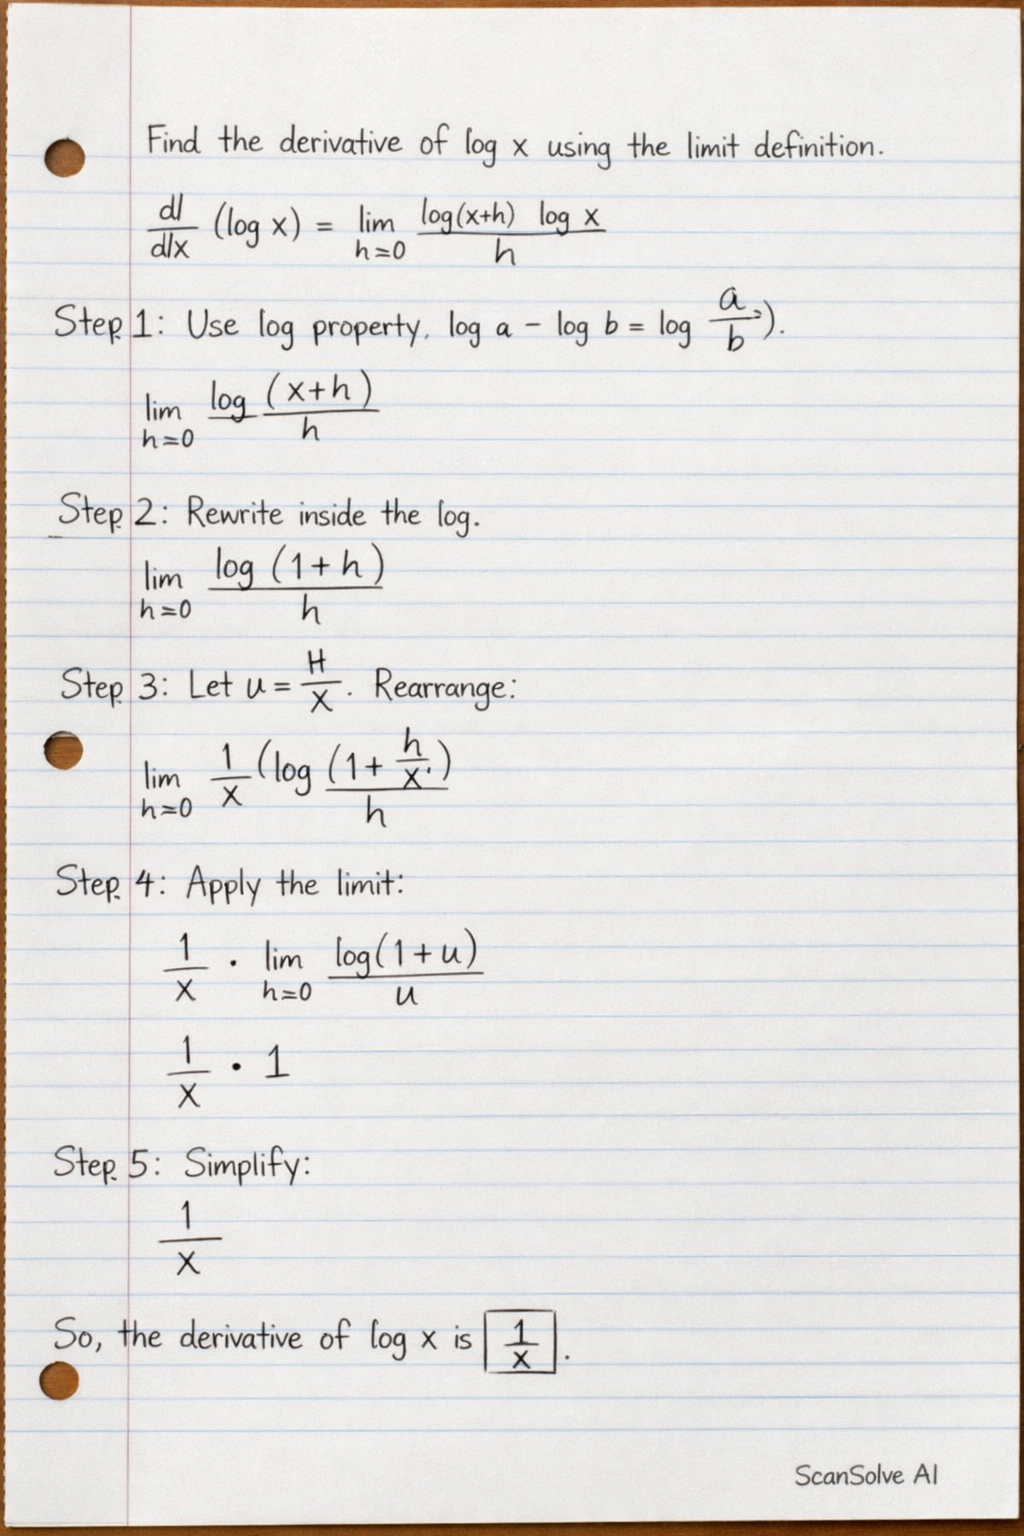 Find the derivative of log x using the limit definition.
dl/dlx (log x) = lim h=0 log(x+h) log x / h
Step 1: Use log property, log a - log b = log a/b).
lim h=0 log (x+h) / h
Step 2: Rewrite inside the log.
lim h=0 log (1+h) / h
Step 3: Let u = H/x. Rearrange:
lim h=0 1/x (log (1+ h/x) / h
Step 4: Apply the limit:
1/x · lim h=0 log(1+u) / u
1/x · 1
Step 5: Simplify:
1/x
So, the derivative of log x is 1/x.
ScanSolve AI